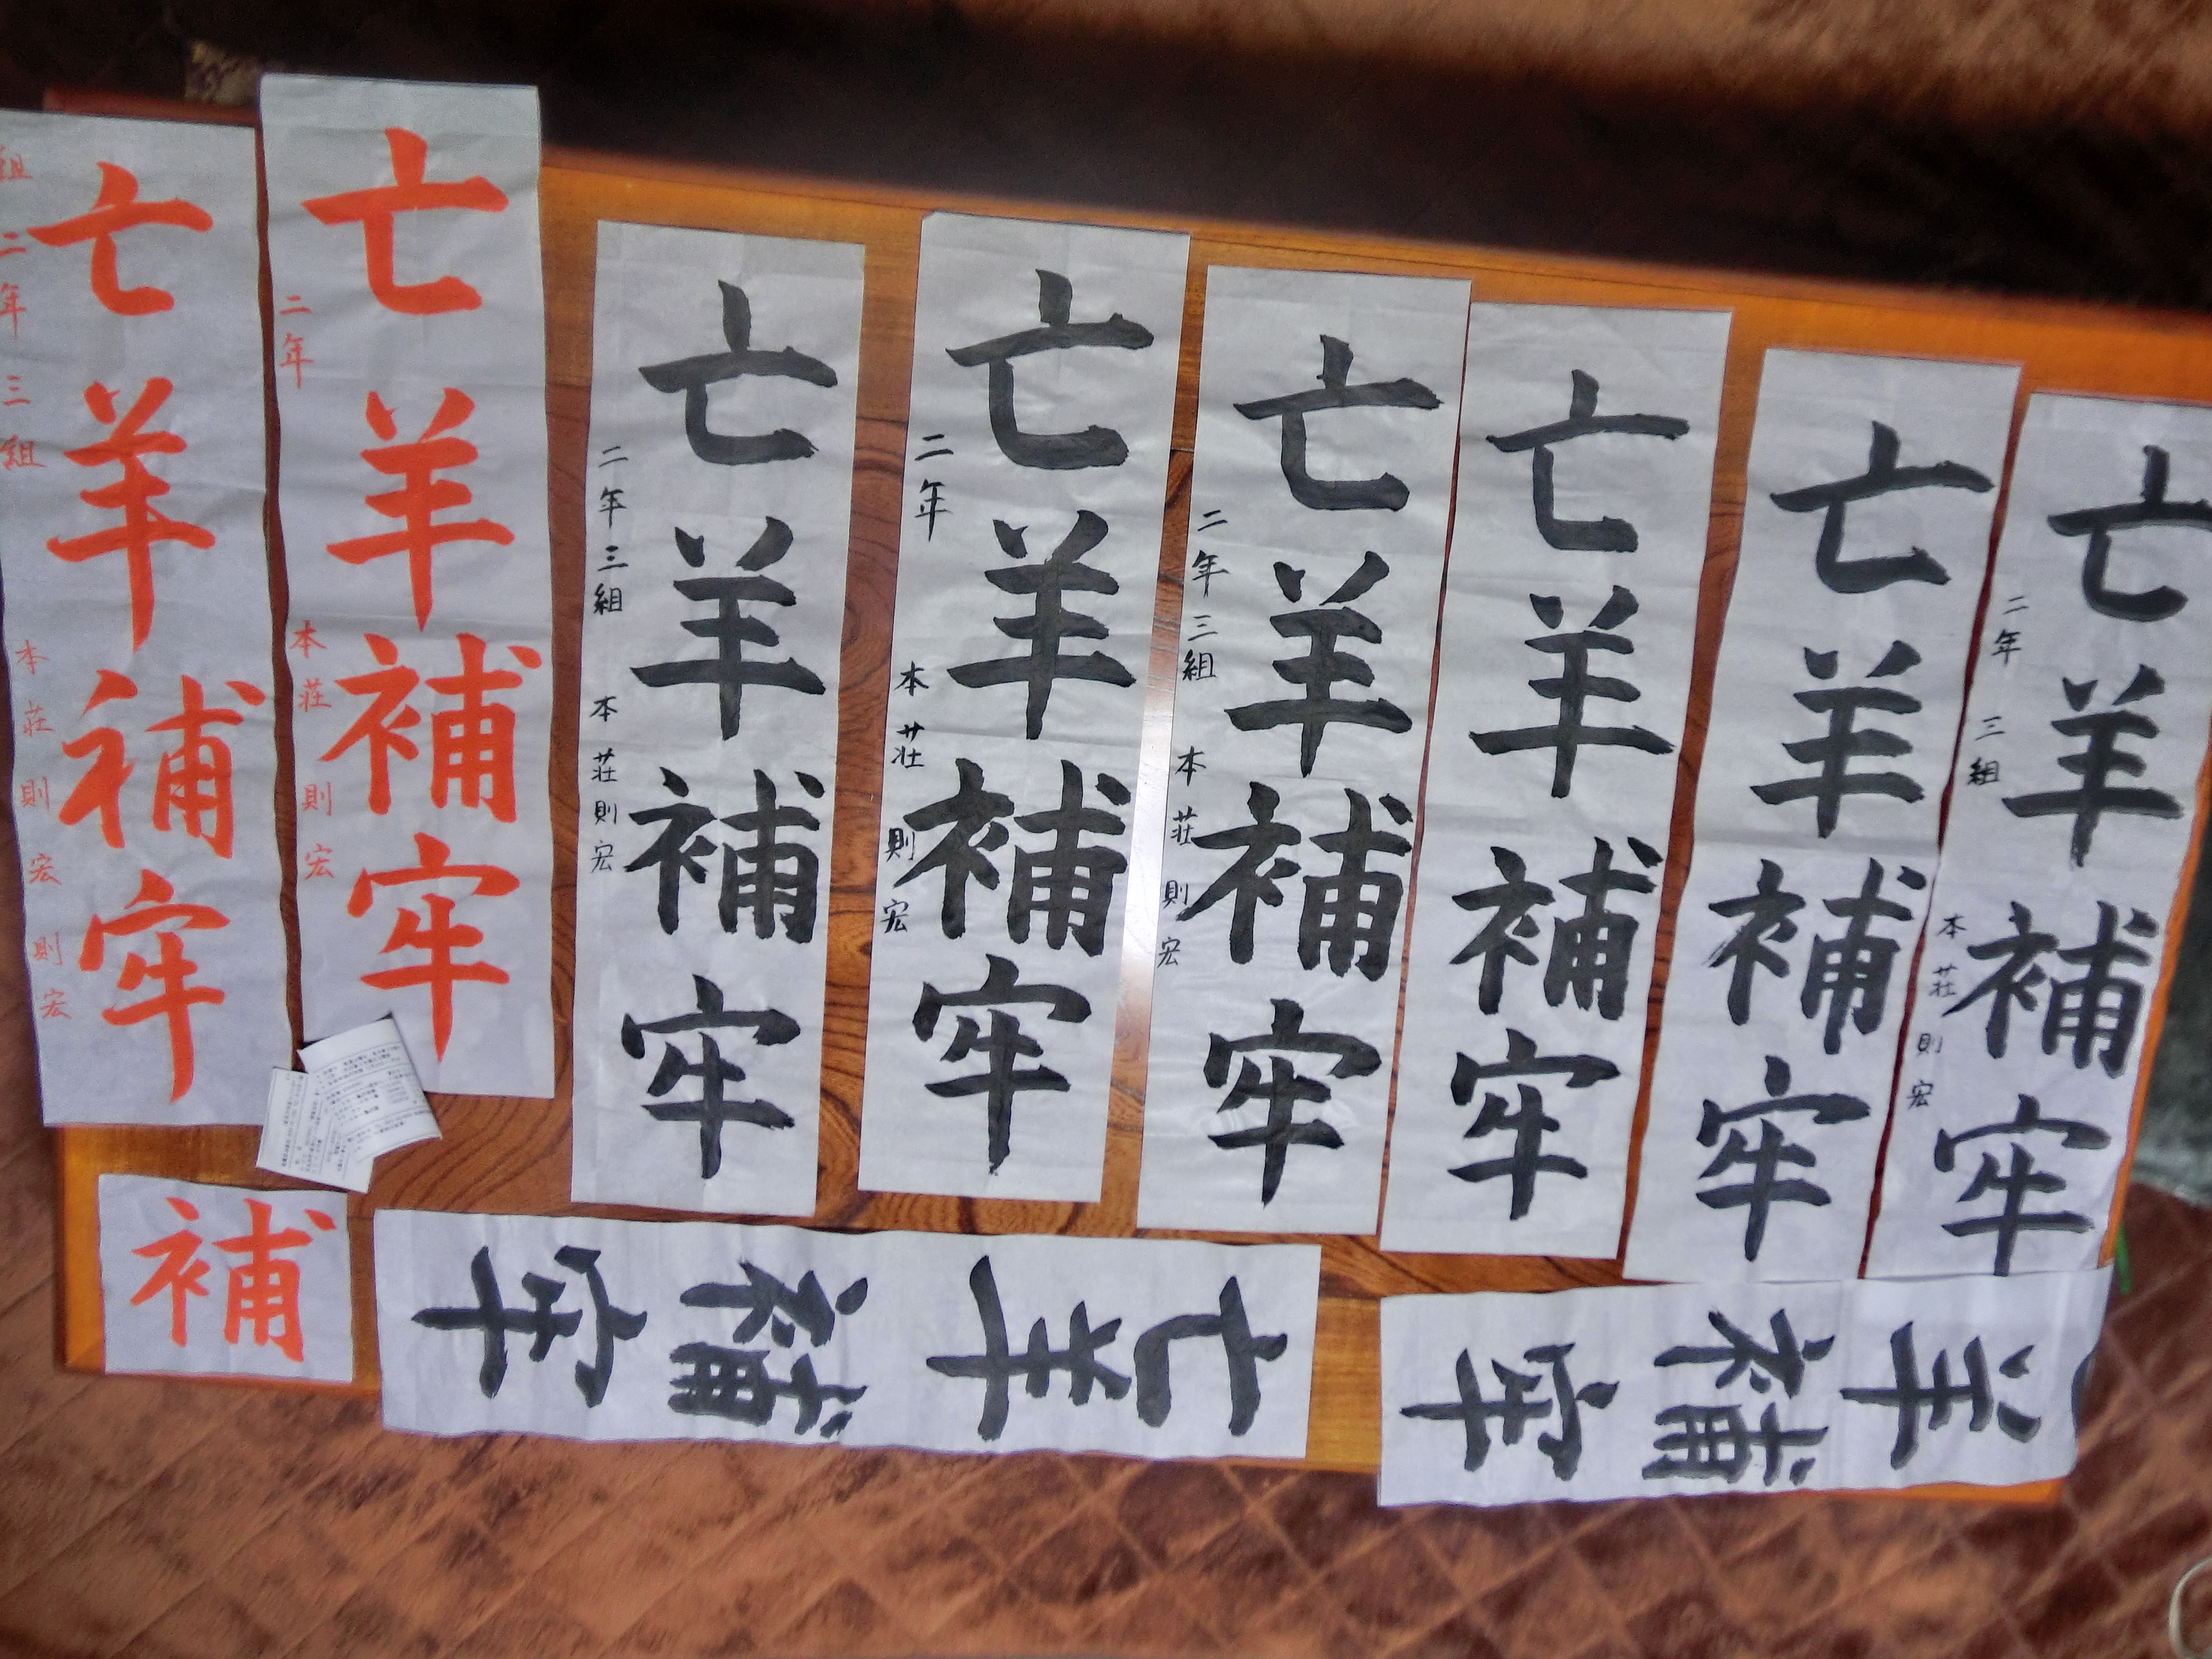 亡羊補牢
組 二年三組 本荘則宏 則宏
亡羊補牢
二年 本荘則宏
亡羊補牢
二年三組 本荘則宏
亡羊補牢
二年 本荘則宏
亡羊補牢
二年三組 本荘則宏
亡羊補牢
亡羊補牢
亡羊補牢
二年三組 本荘則宏
補
亡羊補牢
羊補牢